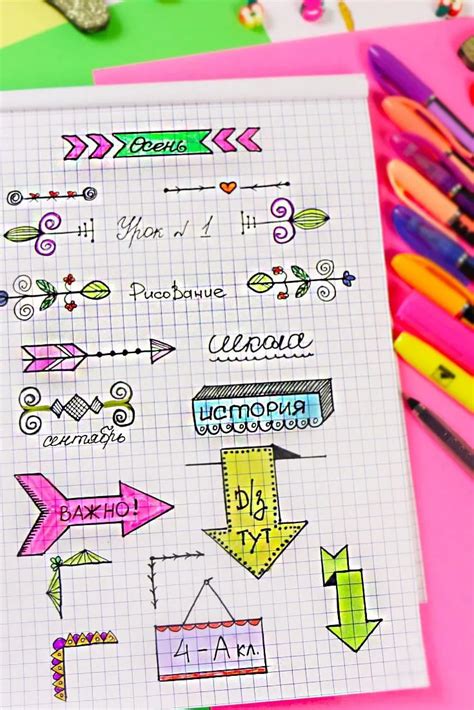 Осень
Урок № 1
Рисование
школа
ИСТОРИЯ
сентябрь
ВАЖНО!
Д/З
ТУТ
4-А кл.